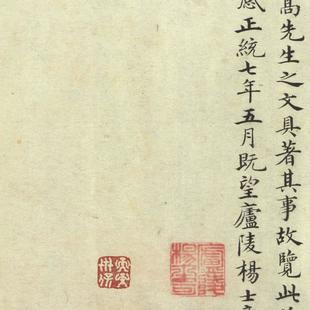 喬先生之文具著其事故覽此
感正統七年五月既望廬陵楊士